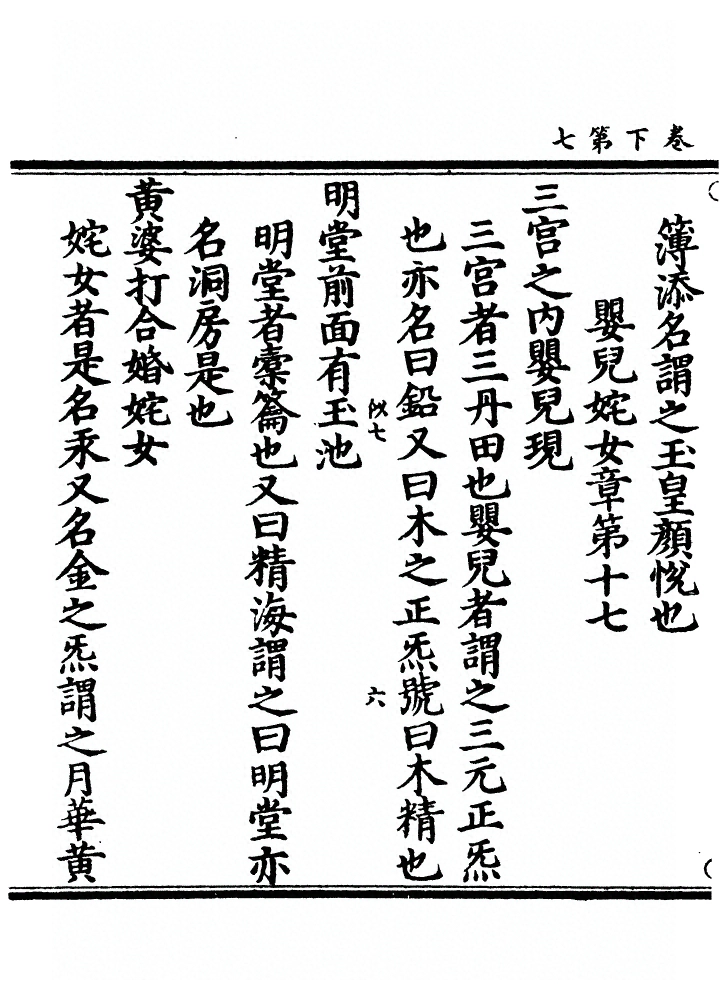 卷下第七
簿添名謂之玉皇顏悅也
嬰兒姹女章第十七
三宮之内嬰兒現
三宮者三丹田也嬰兒者謂之三元正炁
也亦名曰鉛又曰木之正炁號曰木精也
六
明堂前面有玉池
明堂者橐籥也又曰精海謂之曰明堂亦
名洞房是也
黃婆打合婚姹女
姹女者是名汞又名金之炁謂之月華黃